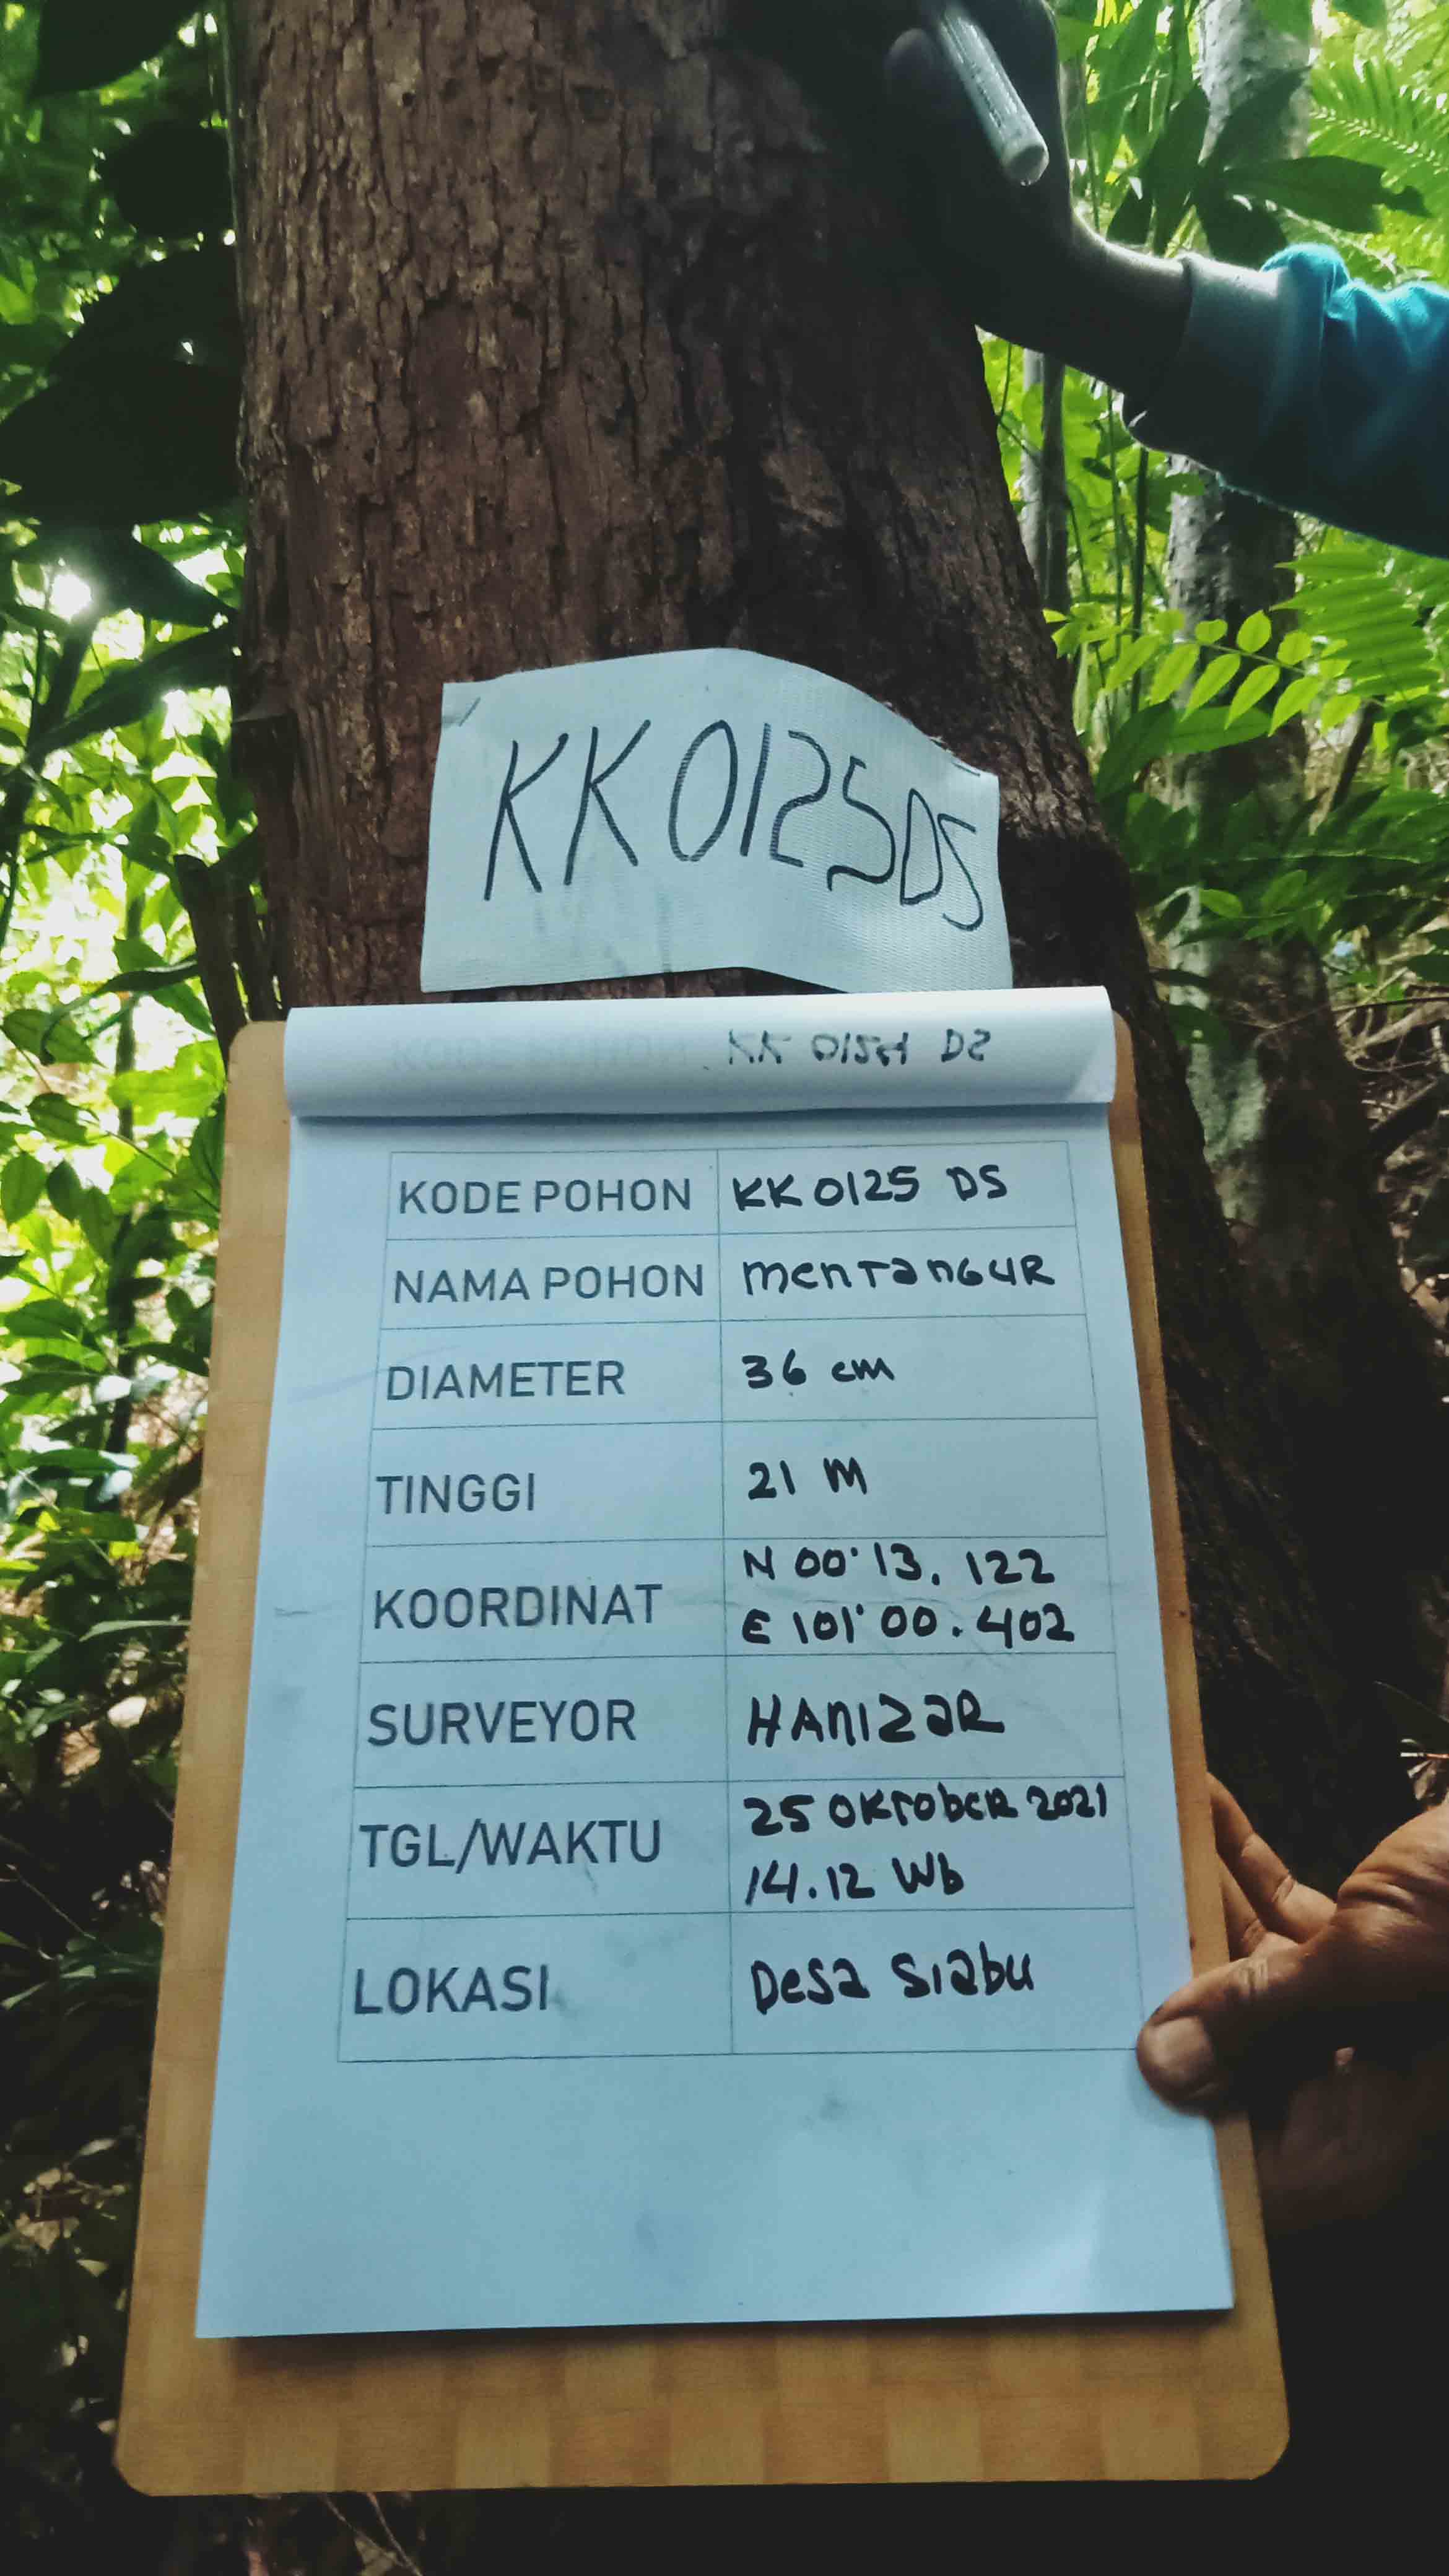 KK0125DS
KODE POHON KK0125 DS
NAMA POHON MenTanGUR
DIAMETER 36 cm
TINGGI 21 M
KOORDINAT N 00° 13. 122
E 101° 00. 402
SURVEYOR HAnIZaR
TGL/WAKTU 25 OKTObeR 2021
14.12 Wb
LOKASI Desa Siabu